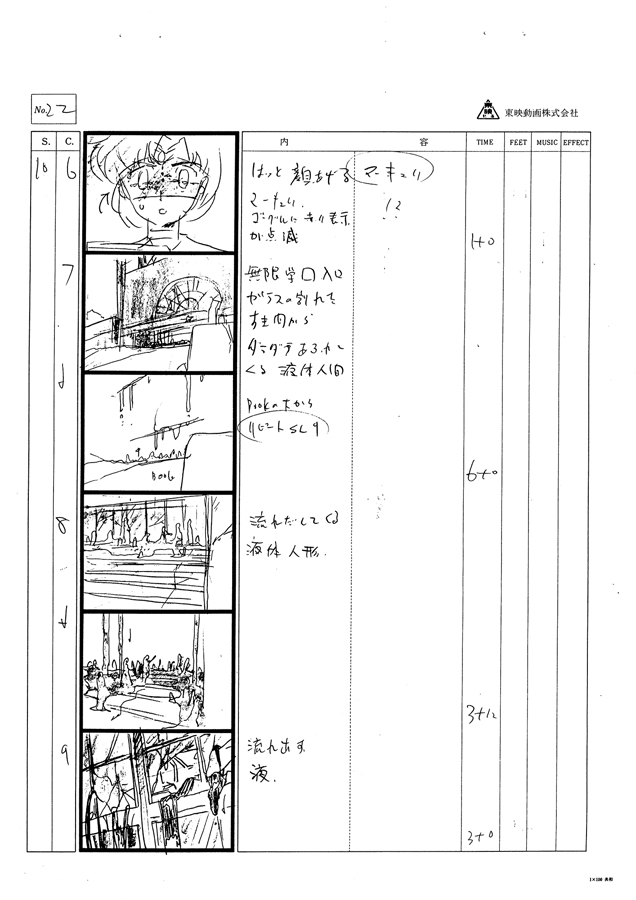 No.22
東映動画株式会社
S. C. 内 容 TIME FEET MUSIC EFFECT
10 6
はっと 顔あげる マーキュリ
マーキュリ、 !?
ゴーグルに
が点滅
1+0
7
無限学口入口
ガラスの割れた
くる 液体人間
BOOKの下から
BOOK
6+0
8
流れだしてくる
液体人形.
3+12
9
流れ出す
液.
3+0